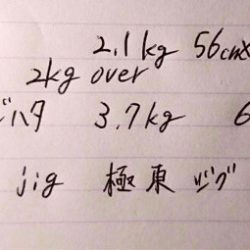 2.1kg 56cm
2kg over
ハタ 3.7kg 6
jig 極東ジグ